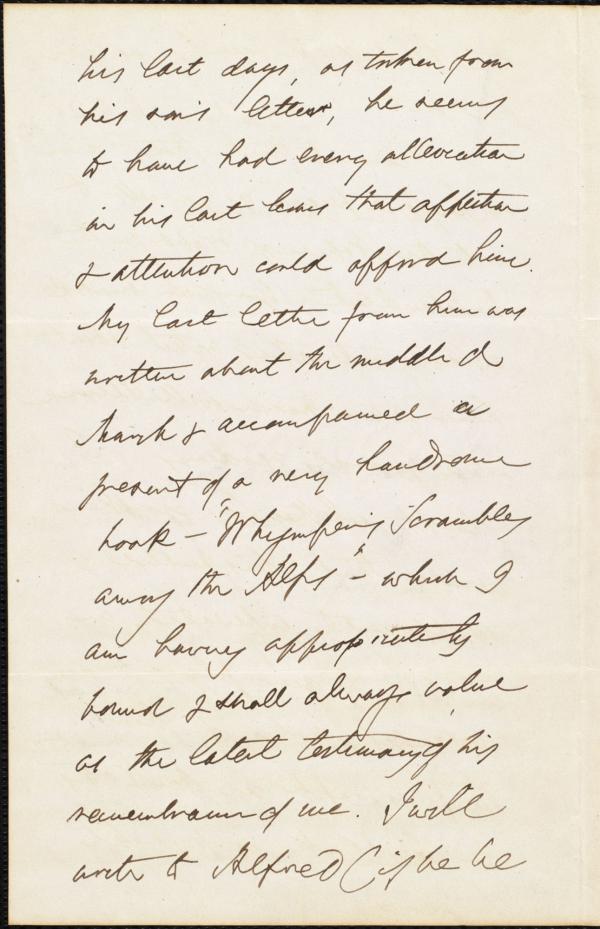 his last days, as taken from
his son's letter, he seems
to have had every alleviation
in his last hours that affection
& attention could afford him.
My last letter from him was
written about the middle of
March & accompanied a
present of a very handsome
book - "Whymper's Scrambles
among the Alps" - which I
am having appropriately
bound & shall always value
as the latest testimony of his
remembrance of me. I will
write to Alfred (if he be